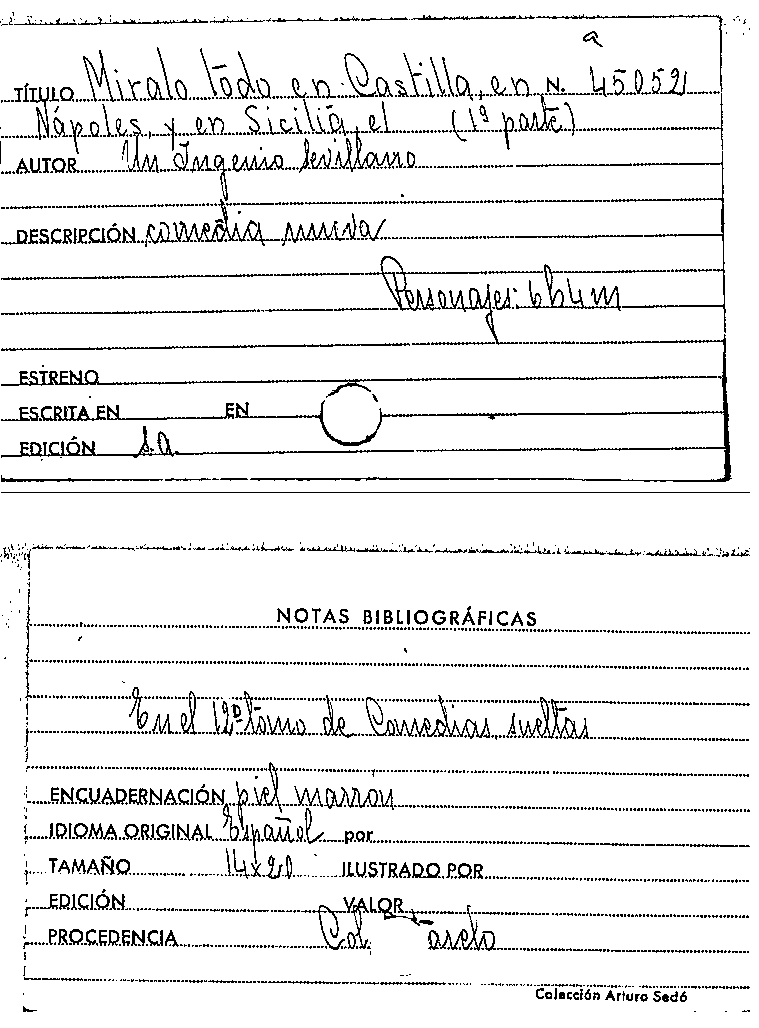 a
TÍTULO Miralo todo en Castilla, en N. 45052
Nápoles, y en Sicilia, el (1ª parte)
AUTOR Un Ingenio Sevillano
DESCRIPCIÓN comedia nueva
Personajes: 6h4m
ESTRENO
ESCRITA EN EN
EDICIÓN s.a.
NOTAS BIBLIOGRÁFICAS
En el 12º tomo de Comedias sueltas
ENCUADERNACIÓN piel marrón
IDIOMA ORIGINAL Español por
TAMAÑO 14x20 ILUSTRADO POR
EDICIÓN VALOR
PROCEDENCIA Col.
Colección Arturo Sedó